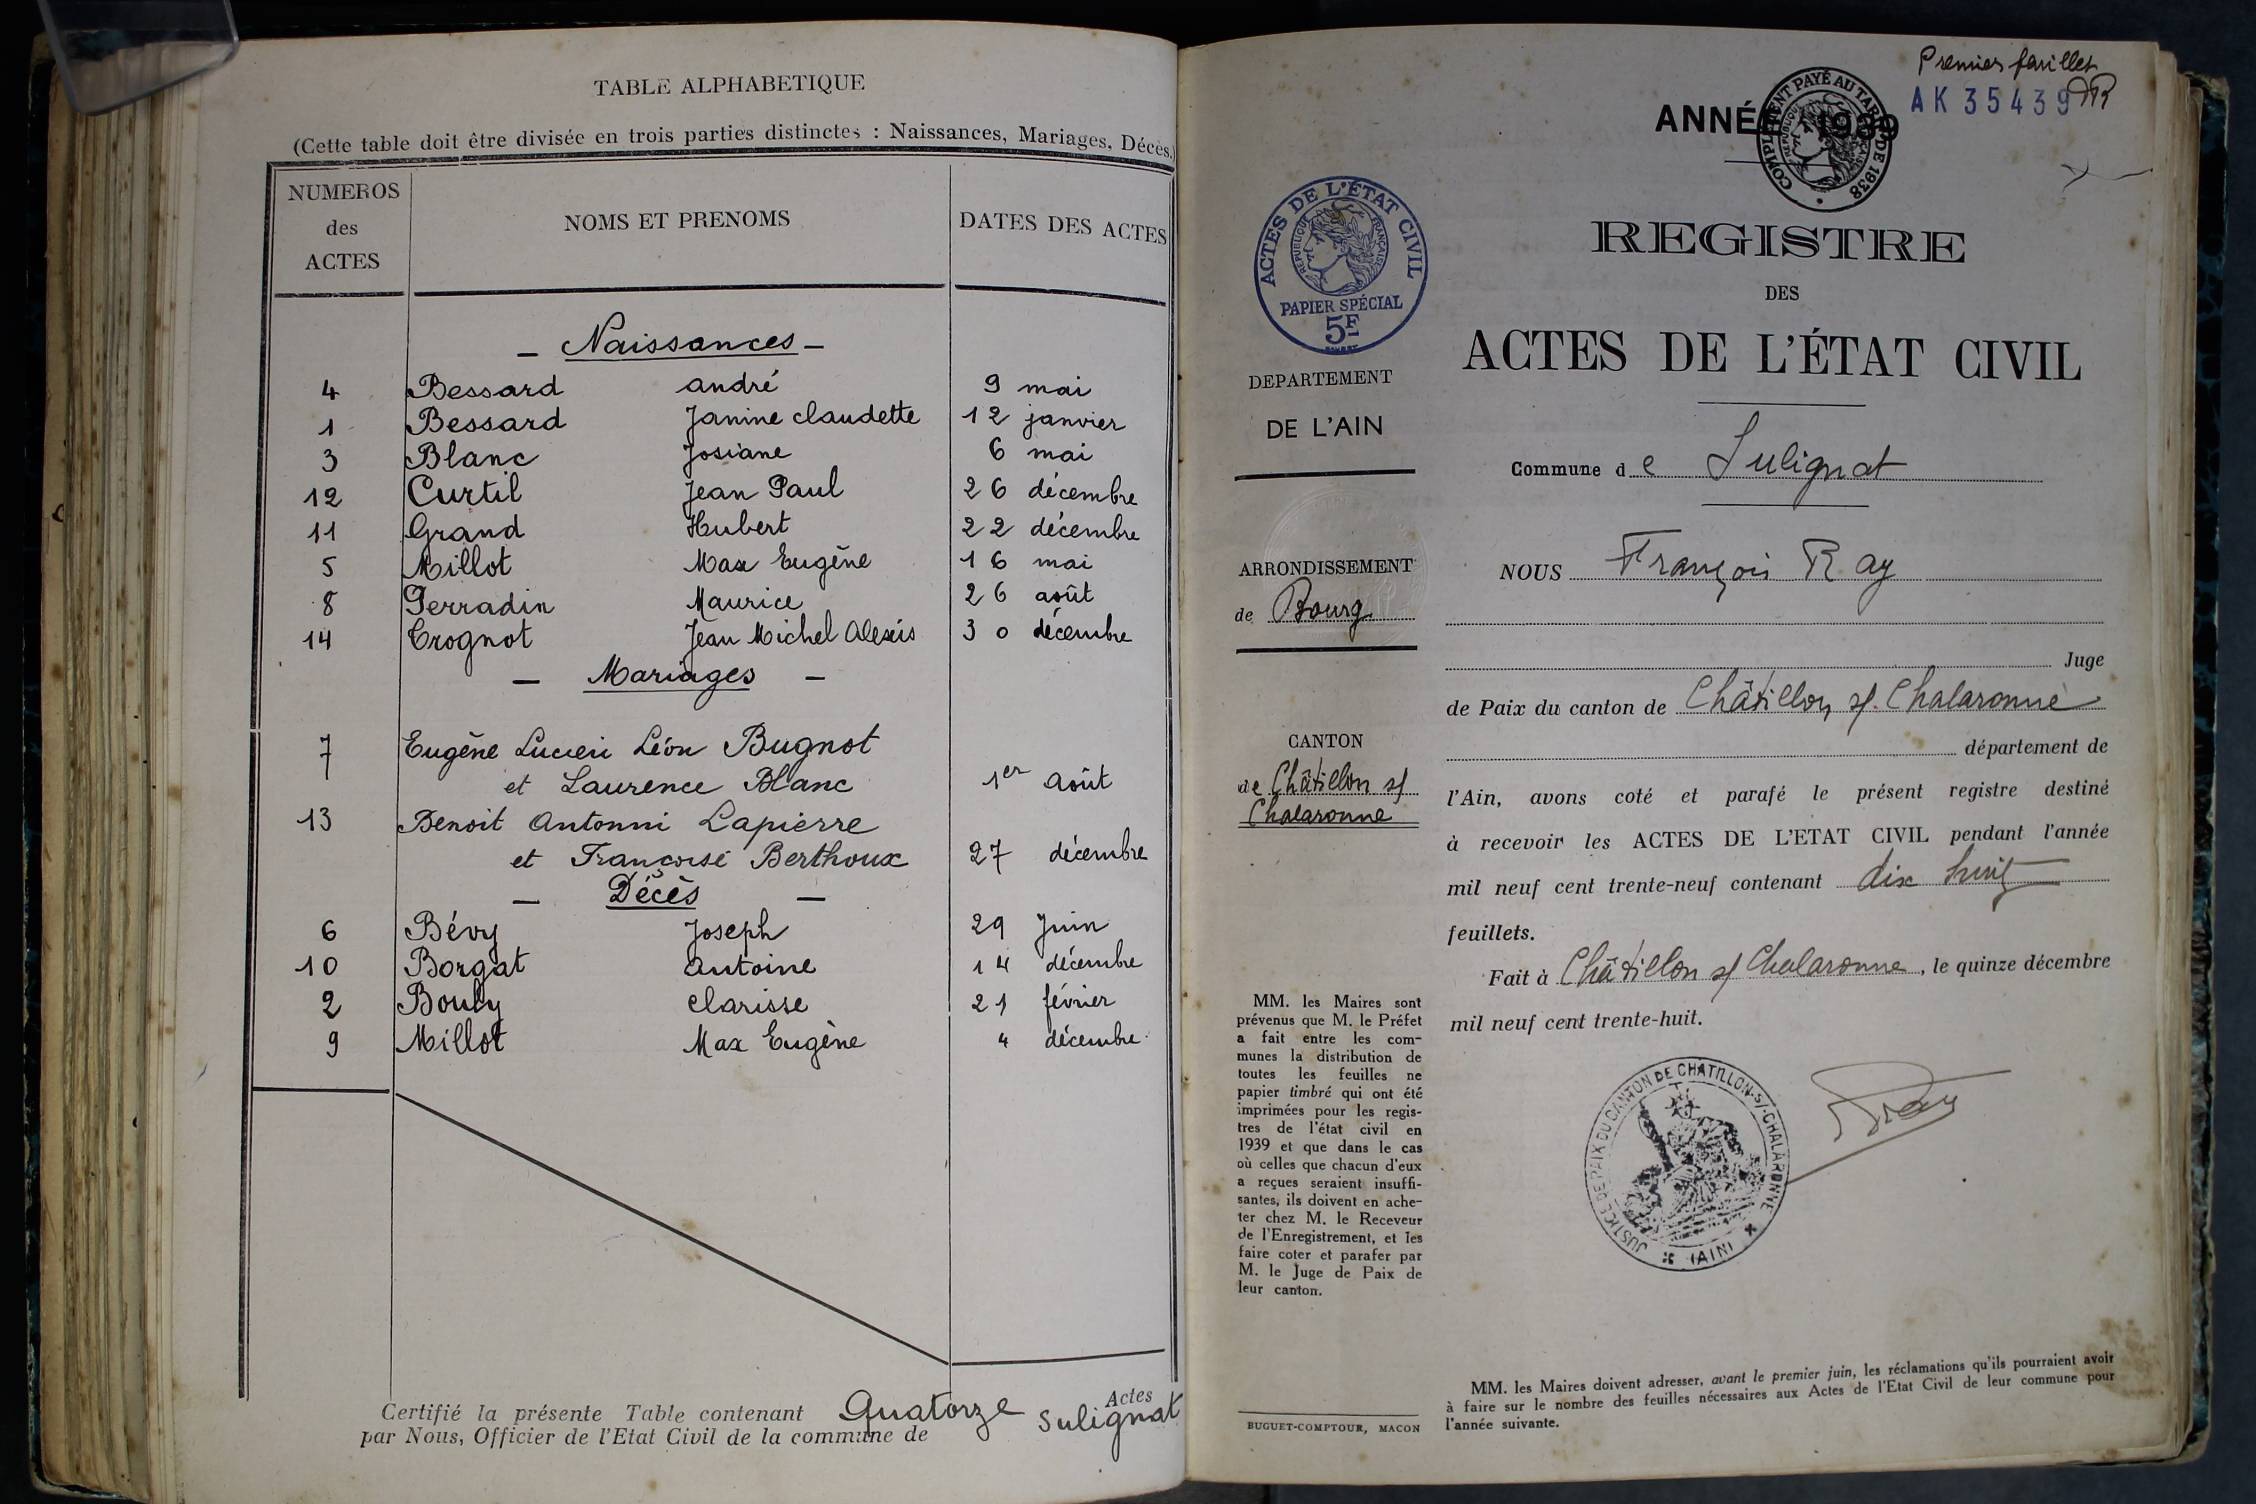 TABLE ALPHABETIQUE
(Cette table doit être divisée en trois parties distinctes : Naissances, Mariages, Décès.)
NUMEROS des ACTES NOMS ET PRENOMS DATES DES ACTES
- Naissances -
4 Bessard andré 9 mai
1 Bessard Janine claudette 12 janvier
3 Blanc Josiane 6 mai
12 Curtil Jean Paul 26 décembre
11 Grand Hubert 22 décembre
5 Millot Max Eugène 16 mai
8 Perradin Maurice 26 août
14 Trognot Jean Michel Alexis 30 décembre
- Mariages -
7 Eugène Lucien Léon Bugnot
et Laurence Blanc 1er août
13 Benoit Antonni Lapierre
et Françoise Berthoux 27 décembre
- Décès -
6 Bévy Joseph 29 Juin
10 Borgat Antoine 14 décembre
2 Bouly clarisse 21 février
9 Millot Max Eugène 4 décembre
Certifié la présente Table contenant Quatorze Actes
par Nous, Officier de l'Etat Civil de la commune de Sulignat
Premier feuillet
AK 35439
ANNÉE 1939
COMPLEMENT PAYÉ AU TARIF DE 1938
REGISTRE
DES
ACTES DE L'ÉTAT CIVIL
Commune de Sulignat
NOUS François Ray
Juge
de Paix du canton de Châtillon s/. Chalaronne
département de
l'Ain, avons coté et parafé le présent registre destiné
à recevoir les ACTES DE L'ETAT CIVIL pendant l'année
mil neuf cent trente-neuf contenant dix huit
feuillets.
Fait à Châtillon s/ Chalaronne, le quinze décembre
mil neuf cent trente-huit.
JUSTICE DE PAIX DU CANTON DE CHATILLON-S/-CHALARONNE
(AIN)
Ray
MM. les Maires doivent adresser, avant le premier juin, les réclamations qu'ils pourraient avoir
à faire sur le nombre des feuilles nécessaires aux Actes de l'Etat Civil de leur commune pour
l'année suivante.
ACTES DE L'ÉTAT CIVIL
RÉPUBLIQUE FRANÇAISE
PAPIER SPÉCIAL
5F
DEPARTEMENT
DE L'AIN
ARRONDISSEMENT
de Bourg
CANTON
de Châtillon s/
Chalaronne
MM. les Maires sont
prévenus que M. le Préfet
a fait entre les com-
munes la distribution de
toutes les feuilles ne
papier timbré qui ont été
imprimées pour les regis-
tres de l'état civil en
1939 et que dans le cas
où celles que chacun d'eux
a reçues seraient insuffi-
santes, ils doivent en ache-
ter chez M. le Receveur
de l'Enregistrement, et les
faire coter et parafer par
M. le Juge de Paix de
leur canton.
BUGUET-COMPTOUR, MACON